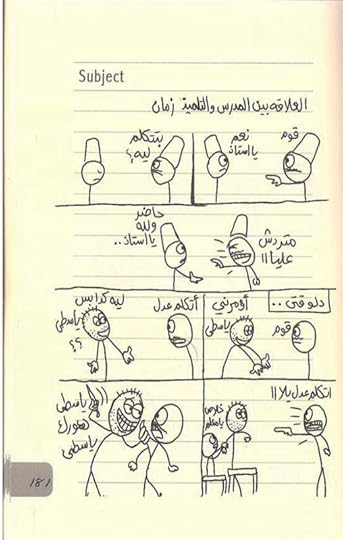 Subject
العلاقه بين المدرس والتلميذ زمان
قوم
نعم
يا استاذ
بتتكلم
ليه؟
متردش
عليا!!
حاضر
ولله
يا استاذ..
دلوقتى ..
قوم
أومرني
ياسطى
اتكلم عدل
ليه كدا بس
ياسطى
؟؟
اتكلم عدل يلا!!
خلاص
يا معلم
ياسطى
هعورك
ياسطى
181